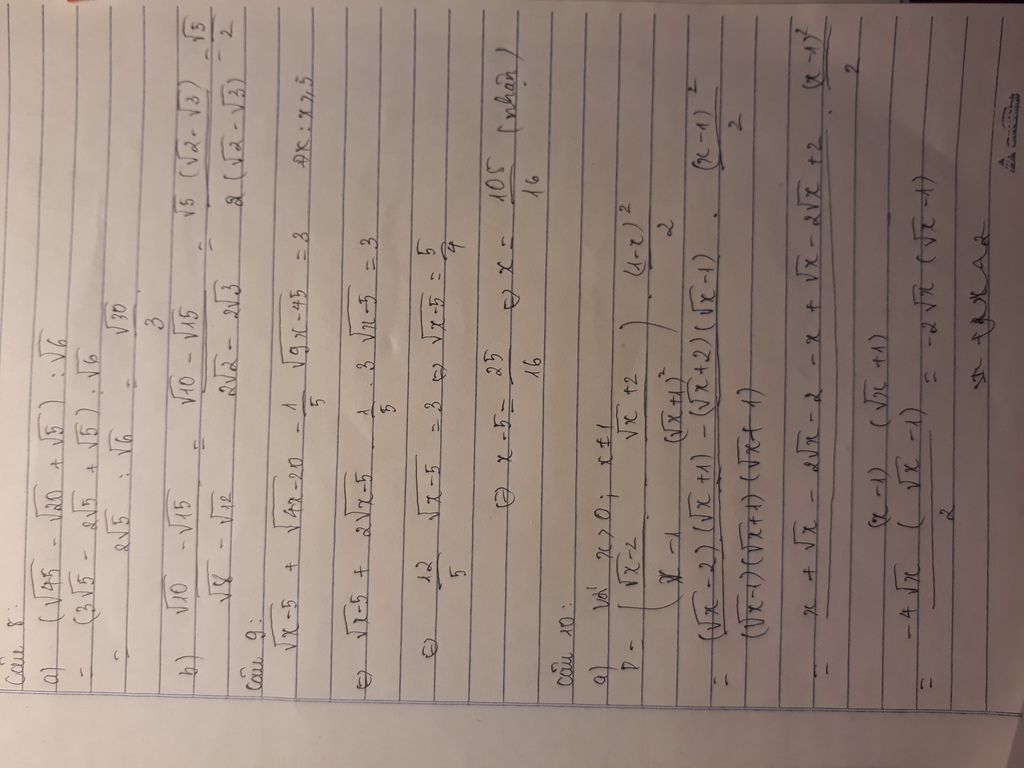 Câu 8:
a) (√45 - √20 + √5) : √6
= (3√5 - 2√5 + √5) : √6
= 2√5 : √6 = √30/3
b) (√10 - √15)/(√8 - √12) = (√10 - √15)/(2√2 - 2√3) = √5(√2 - √3)/2(√2 - √3) = √5/2
Câu 9:
√x-5 + √4x-20 - 1/5 √9x-45 = 3 ĐK: x ≥ 5
⇔ √x-5 + 2√x-5 - 1/5 . 3√x-5 = 3
⇔ 12/5 √x-5 = 3 ⇔ √x-5 = 5/4
⇔ x-5 = 25/16 ⇔ x = 105/16 (nhận)
Câu 10:
a) Với x > 0; x ≠ 1
P = ((√x-2)/(x-1) - (√x+2)/(√x+1)²) . (1-x)²/2
= ((√x-2)(√x+1) - (√x+2)(√x-1))/((√x-1)(√x+1)(√x+1)) . (x-1)²/2
= (x + √x - 2√x - 2 - x + √x - 2√x + 2)/((x-1)(√x+1)) . (x-1)²/2
= -4√x(√x-1)/2 = -2√x(√x-1)